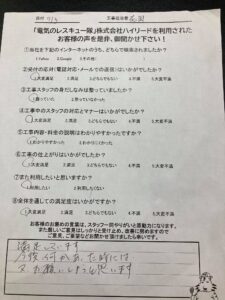 日付 7/3 工事担当者
「電気のレスキュー隊」株式会社ハイリードを利用された
お客様の声を是非、御聞かせ下さい！
①当社を下記のインターネットのうち、どちらで検索されましたか？
1.Yahoo 2.Google 3.その他
②受付の応対（電話対応・メールでの返信）はいかがでしたか？
1.大変満足 2.満足 3.どちらでもない 4.不満 5.大変不満
③工事スタッフの身だしなみは整っていましたか？
1.整っていた 2.整っていなかった
④工事中のスタッフの対応とマナーはいかがでしたか？
1.大変満足 2.満足 3.どちらでもない 4.不満 5.大変不満
⑤工事内容・料金の説明はわかりやすかったですか？
1.わかりやすかった 2.わかりにくかった
⑥工事の仕上がりはいかがでしたか？
1.大変満足 2.満足 3.どちらでもない 4.不満 5.大変不満
⑦また利用したいと思いますか？
1.利用したい 2.利用したくない
⑧全体を通しての満足度はいかがですか？
1.大変満足 2.満足 3.どちらでもない 4.不満 5.大変不満
お客様のお褒めの言葉は、スタッフ一同やりがいと原動力になります。
また厳しいご意見はしっかりと受け止め、改善に努めますので
ご意見、ご要望などお聞かせ頂けましたら幸いです。
満足しています
今後何かあった時には
又お願いしようと思います